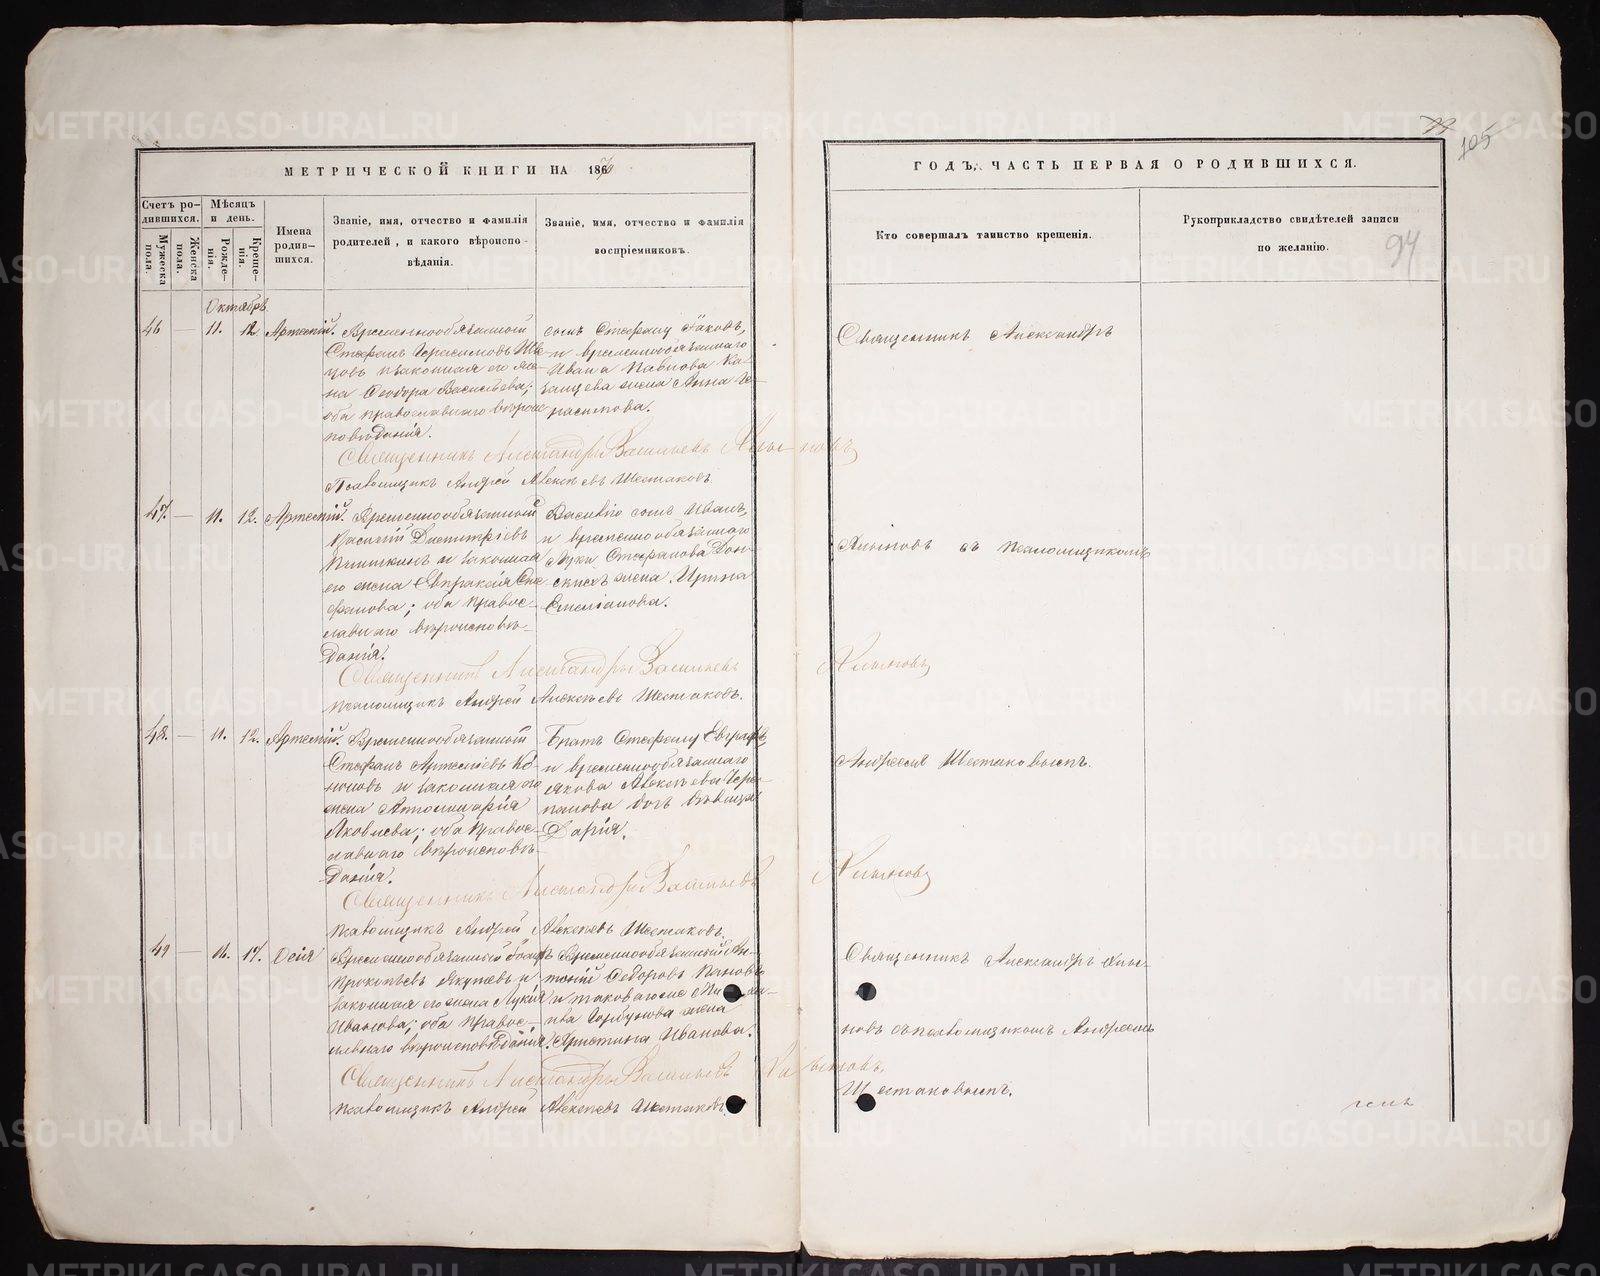 МЕТРИЧЕСКОЙ КНИГИ НА 186
ГОДЪ, ЧАСТЬ ПЕРВАЯ О РОДИВШИХСЯ.
105
94
Счетъ ро-
дившихся.
Мужеска пола.
Женска пола.
Мѣсяцъ
и день.
Рожде-
нія.
Креще-
нія.
Имена
родив-
шихся.
Званіе, имя, отчество и фамилія
родителей, и какого вѣроиспо-
вѣданія.
Званіе, имя, отчество и фамилія
воспріемниковъ.
Кто совершалъ таинство крещенія.
Рукоприкладство свидѣтелей записи
по желанію.
Октябрь
46 — 11. 12. Артемій.
Временнообязанной
Стефанъ Герасимовъ
законная его же-
на Феодора Васильева;
оба православнаго вѣроис-
повѣданія.
сынъ Стефану Іаковъ,
и временнообязаннаго
Ивана Павлова Ка-
занцева жена Анна Ге-
расимова.
Священникъ Александръ
Священникъ Александръ Васильевъ
Псаломщикъ Андрей Алексѣевъ Шестаковъ.
47. — 11. 12. Артемій.
Временнообязанной
Василій Димитріевъ
и законная
его жена Евпраксія Сте-
фанова; оба правос-
лавнаго вѣроисповѣ-
данія.
Василію сынъ Иванъ,
и временнообязаннаго
Луки Стефанова Дон-
скихъ жена Ирина
Священникъ Александръ Васильевъ
Псаломщикъ Андрей Алексѣевъ Шестаковъ.
съ псаломщикомъ
48. — 11. 12. Артемій.
Временнообязанной
Стефанъ Артеміевъ Ко-
ноновъ и законная его
жена Антонина
Яковлева; оба правос-
лавнаго вѣроисповѣ-
данія.
Братъ Стефану
и временнообязаннаго
Якова Алексѣева Чере-
панова дочь дѣвица
Дарія.
Андреемъ Шестаковымъ.
Священникъ Александръ Васильевъ
Псаломщикъ Андрей Алексѣевъ Шестаковъ.
49 — 11. 17. Осія
Временнообязанный
Прокопьевъ Якушевъ и
законная его жена Лукія
Иванова; оба правос-
лавнаго вѣроисповѣданія.
Временнообязанной Ан-
тоній Федоровъ Пановъ
и таковагоже
Горбунова жена
Христина Иванова.
Священникъ Александръ
новъ съ псаломщикомъ Андреемъ
Шестаковымъ.
Священникъ Александръ Васильевъ
Псаломщикъ Андрей Алексѣевъ Шестаковъ
METRIKI.GASO-URAL.RU